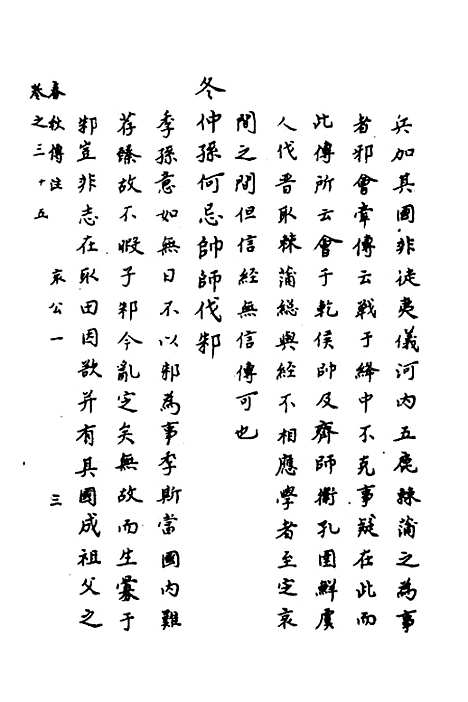 兵加其國非徒夷儀河内五鹿棘蒲之為事
者邪會常傳云戰于絳中不克事疑在此而
此傳所云會于乾侯師及齊師衛孔圉鮮虞
人伐晋取棘蒲總與經不相應學者至定哀
間之間但信經無信傳可也
冬仲孫何忌帥師伐邾
季孫意如無日不以邾為事季斯當國内難
荐臻故不暇于邾今亂定矣無故而生釁于
邾豈非志在取田因欲并有其國成祖父之
春秋傳注 哀公一 三
卷之三十五